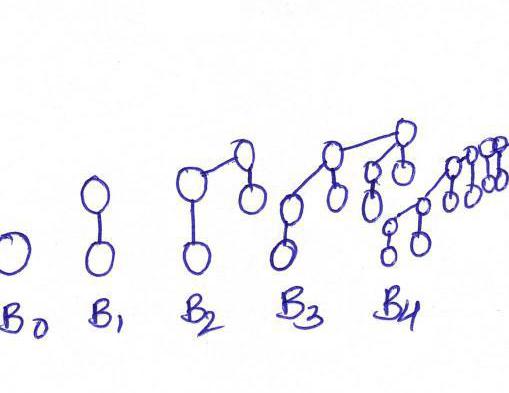 B0 B1 B2 B3 B4